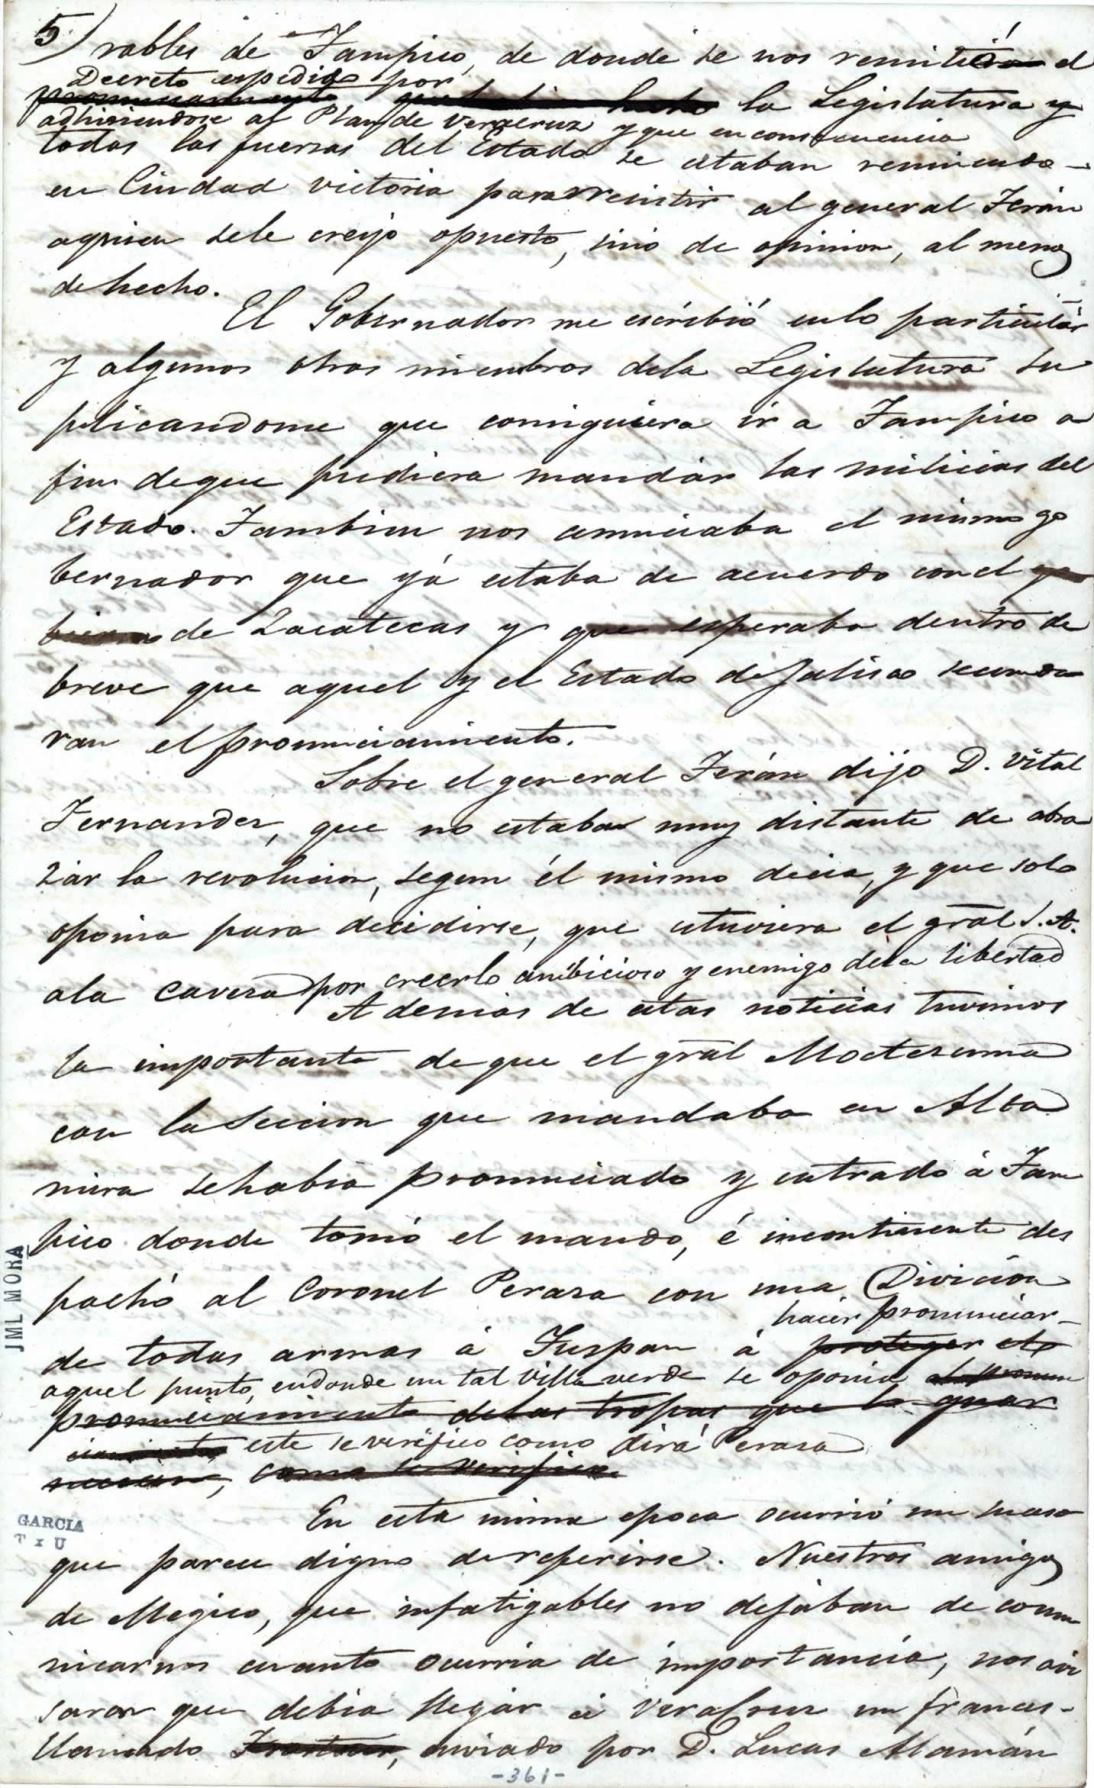 5) rables de Tampico, de donde se nos remitió el
Decreto espedido por
la Legislatura y
adhiriendose al Plan de Veracruz y que en consecuencia
todas las fuerzas del Estado se estaban reuniendo
en Ciudad victoria para resistir al general Terán
aquien sele creyo opuesto, sinó de opinion, al menos
de hecho.
El Gobernador me escribió enlo particular
y algunos otros miembros dela Legislatura su
plicandome que consiguiera ir a Tampico a
fin de que pudiera mandár las milicias del
Estado. Tambien nos anunciaba el mismo go
bernador que yá estaba de acuerdo con el go
bierno de Zacatecas y que esperaba dentro de
breve que aquel y el Estado de Jalisco secunda
ran el pronunciamiento.
Sobre el general Terán dijo D. Vital
Fernandez, que no estaba muy distante de abra
zár la revolucion, segun él mismo decia, y que solo
oponia para decidirse, que estuviera el gral S. A.
ala caveza por creerlo ambicioso y enemigo dela libertad
Ademas de estas noticias tuvimos
la importante de que el gral Moctezuma
con la Seccion que mandaba en Alta
mira sehabia pronunciado y entrado á Tam
pico donde tomó el mando, é incontinente des
pachó al Coronel Peraza con una Division
hacer pronunciar
de todas armas á Tuspan á proteger el
aquel punto, endonde un tal Villa verde se oponia
pronunciamiento delas tropas que lo guar
este se verifico como dirá Peraza
necian, como se verifico.
En esta misma epoca ocurrió un suceso
que parece digno de referirse. Nuestros amigos
de Megico, que infatigables no dejaban de comu
nicarnos cuanto ocurria de importancia, nos avi
saron que debia llegár á VeraCruz un frances
llamado enviado por D. Lucas Alamán
-361-
JML MORA
GARCIA